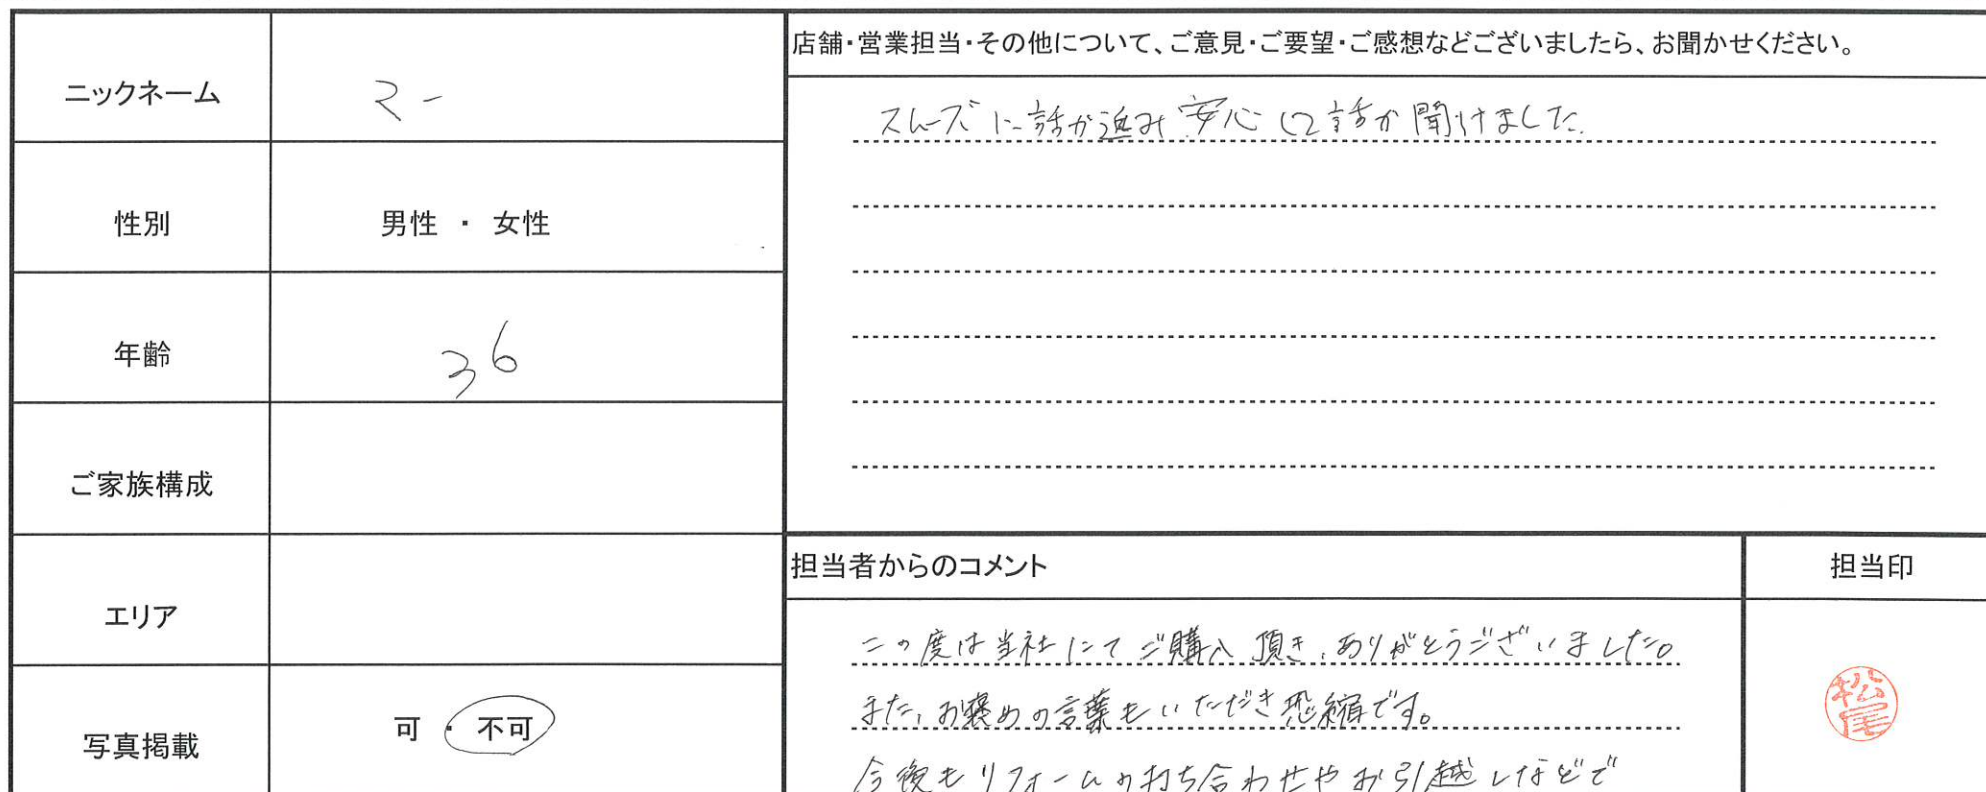 ニックネーム
マー
性別
男性 ・ 女性
年齢
36
ご家族構成
エリア
写真掲載
可 ・ 不可
店舗・営業担当・その他について、ご意見・ご要望・ご感想などございましたら、お聞かせください。
スムーズに話が進み安心して話が聞けました。
担当者からのコメント
この度は当社にてご購入頂き、ありがとうございました。
また、お褒めの言葉もいただき恐縮です。
今後もリフォームの打ち合わせやお引越しなどで
担当印
松尾